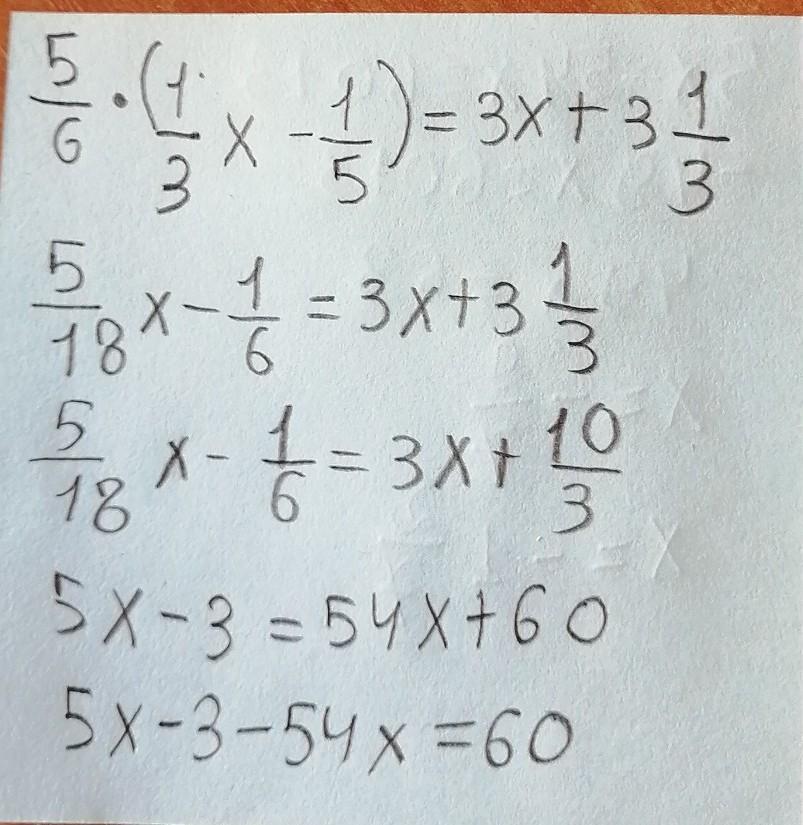 5/6 · (1/3 x - 1/5) = 3x + 3 1/3
5/18 x - 1/6 = 3x + 3 1/3
5/18 x - 1/6 = 3x + 10/3
5x - 3 = 54x + 60
5x - 3 - 54x = 60